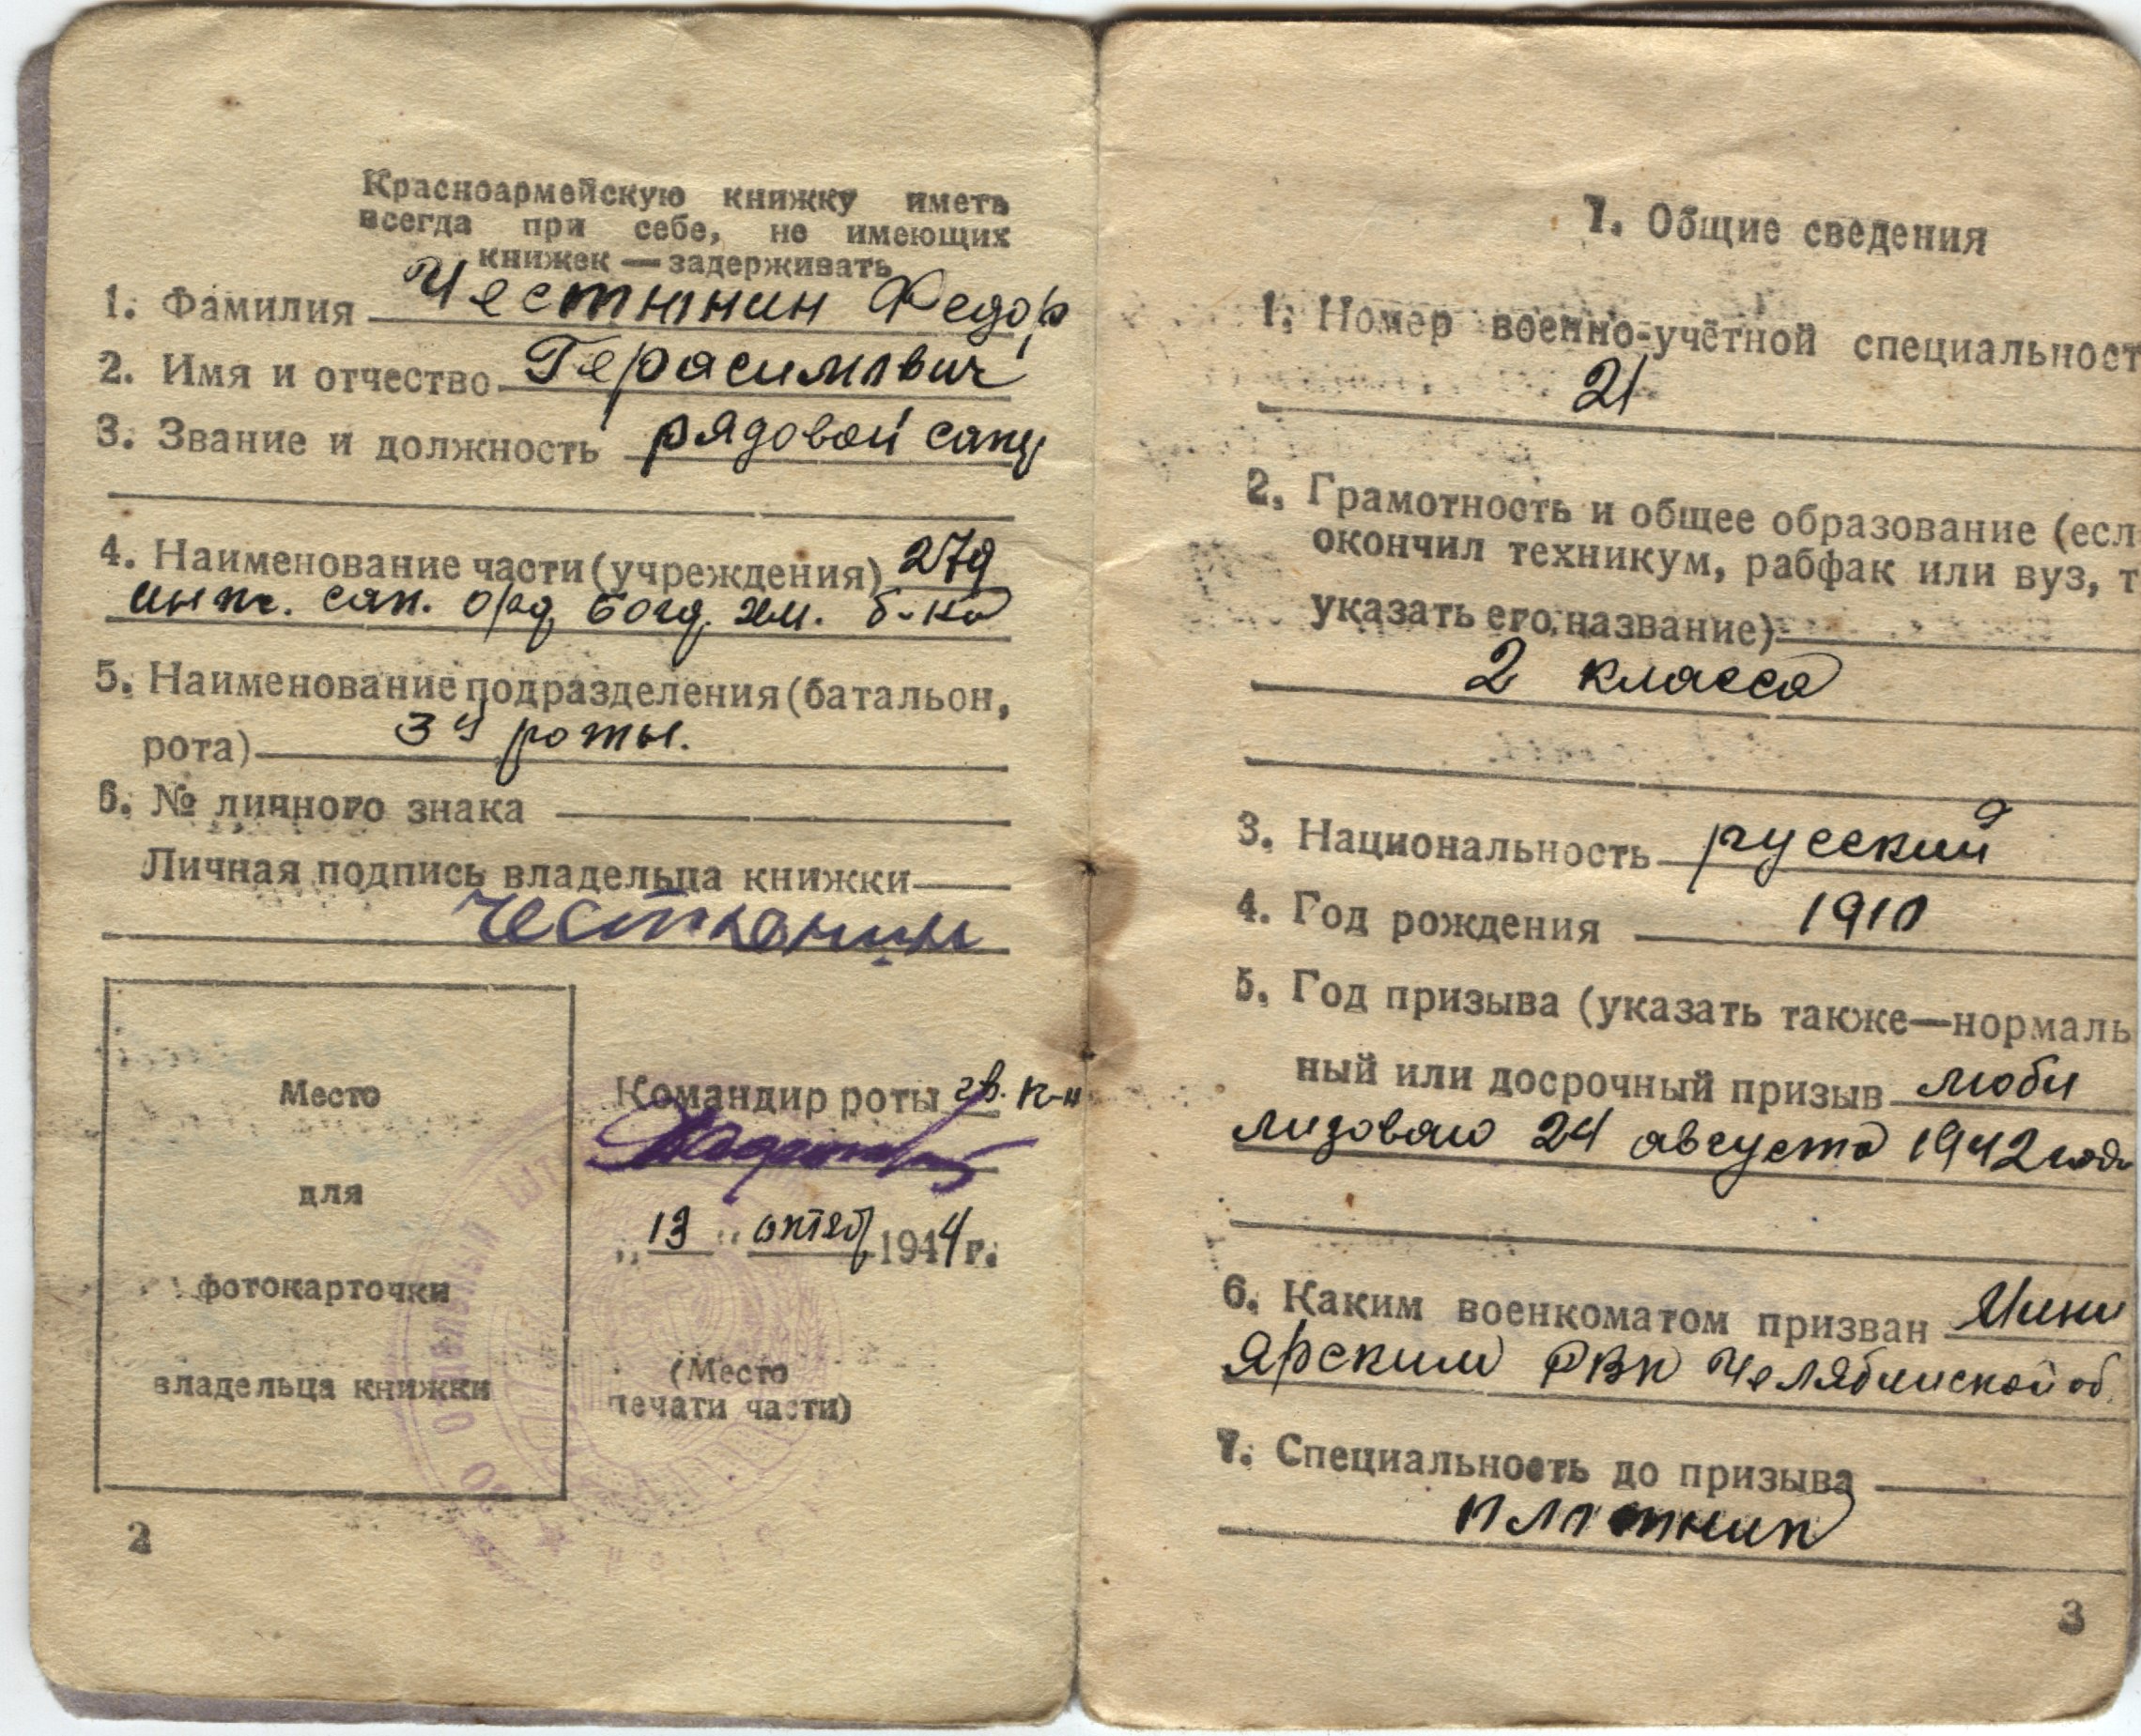 Красноармейскую книжку иметь
всегда при себе, не имеющих
книжек — задерживать
1. Фамилия Честюнин Федор
2. Имя и отчество Герасимович
3. Звание и должность рядовой сапер
4. Наименование части (учреждения) 279
инж. сап. орд. Богд. хм. б-на
5. Наименование подразделения (батальон,
рота) 3й роты.
6. № личного знака
Личная подпись владельца книжки
Честюнин
Место
для
фотокарточки
владельца книжки
Командир роты гв. к-н
„13" октяб 1944 г.
(Место
печати части)
Отдельный
2
1. Общие сведения
1. Номер военно-учётной специальност
21
2. Грамотность и общее образование (есл
окончил техникум, рабфак или вуз, т
указать его название)
2 класса
3. Национальность русский
4. Год рождения 1910
5. Год призыва (указать также—нормаль
ный или досрочный призыв моби
лизован 24 августа 1942 года
6. Каким военкоматом призван Мин
ярским РВК Челябинской об.
7. Специальность до призыва
плотник
3